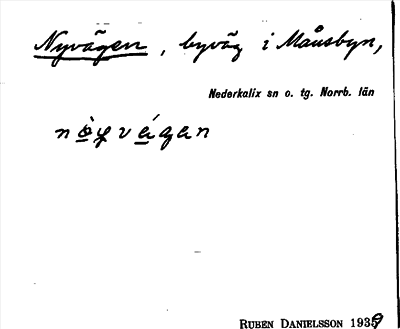 Nyvägen, byväg i Månsbyn,
Nederkalix sn o. tg. Norrb. län
RUBEN DANIELSSON 1939